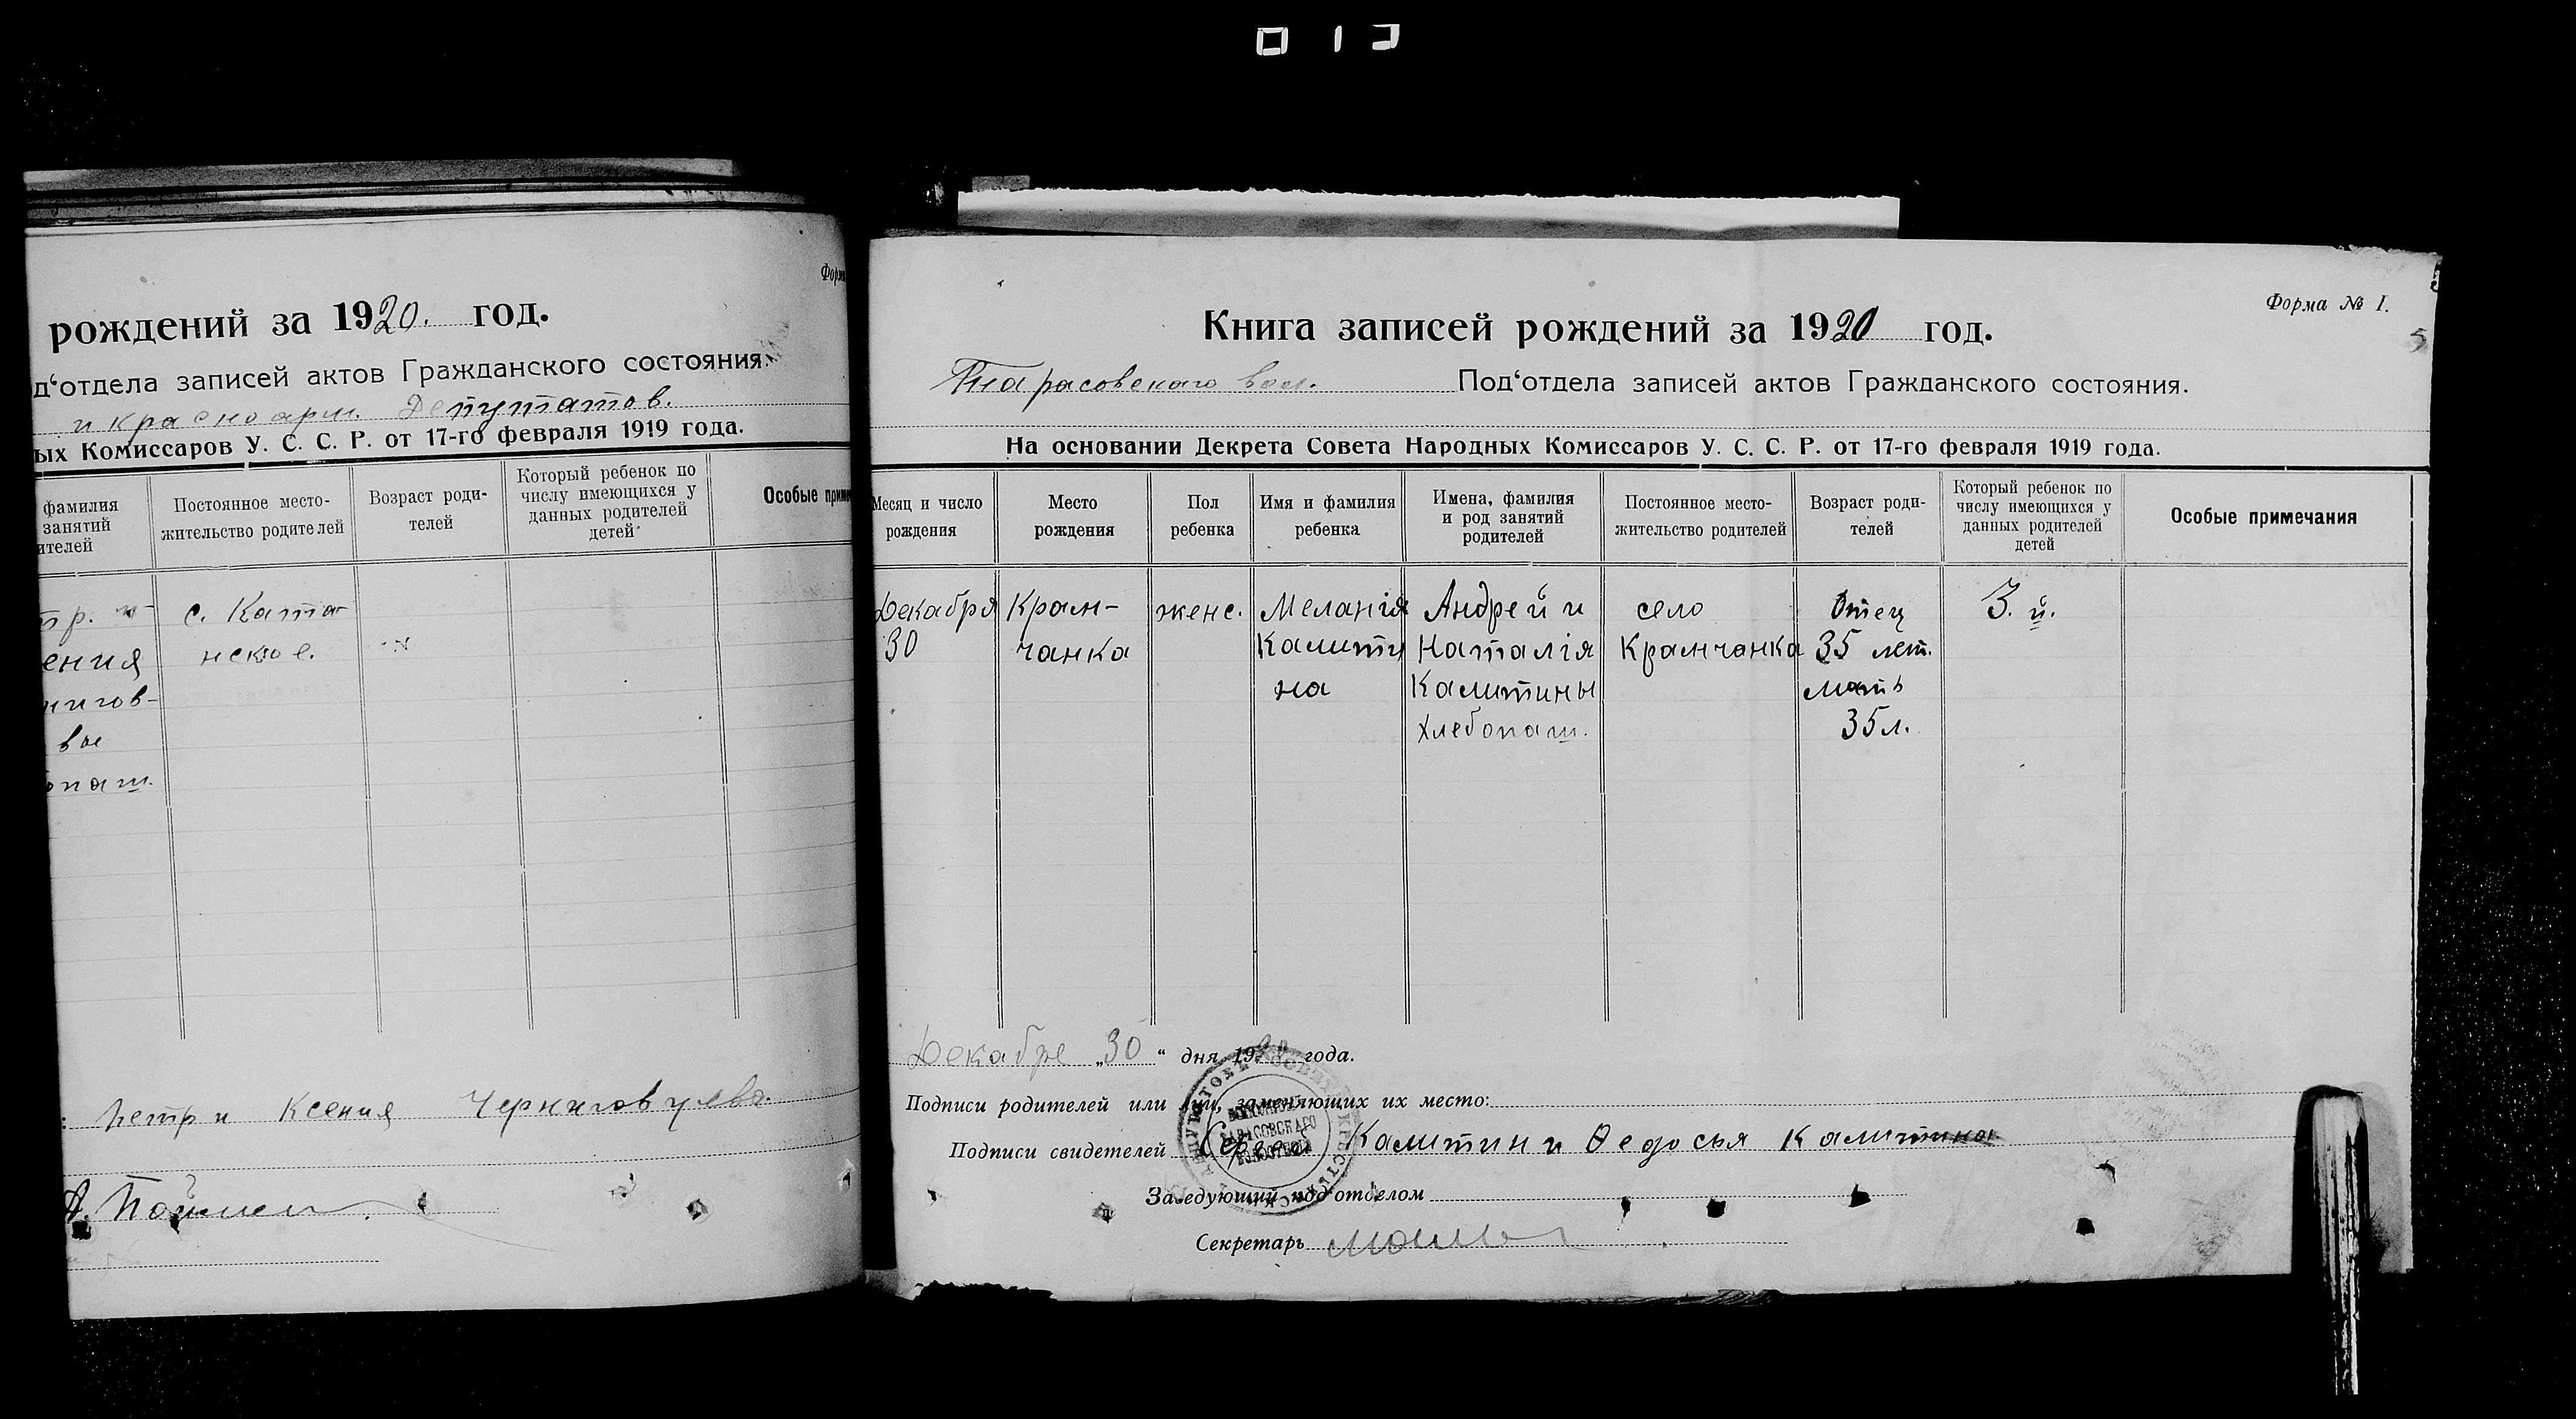 Форма
рождений за 1920. год.
д‘отдела записей актов Гражданского состояния.
и красноарм. Депутатов.
ых Комиссаров У. С. С. Р. от 17-го февраля 1919 года.
фамилия
занятий
ителей
Постоянное место-
жительство родителей
Возраст роди-
телей
Который ребенок по
числу имеющихся у
данных родителей
детей
Особые приме
с. Ката-
нское.
ения
нигов-
вы
опаш.
Петр и Ксения Черниговцевы.
Форма № 1.
5
Книга записей рождений за 1920 год.
Тарасовского вол. Под‘отдела записей актов Гражданского состояния.
На основании Декрета Совета Народных Комиссаров У. С. С. Р. от 17-го февраля 1919 года.
Месяц и число
рождения
Место
рождения
Пол
ребенка
Имя и фамилия
ребенка
Имена, фамилия
и род занятий
родителей
Постоянное место-
жительство родителей
Возраст роди-
телей
Который ребенок по
числу имеющихся у
данных родителей
детей
Особые примечания
Декабря
30
Крам-
чанка
женс.
Меланія
Калити
на
Андрей и
Наталія
Калитины
хлебопаш.
село
Крамчанка
Отец
35 лет.
мать
35 л.
3. й.
Декабре „30“ дня 1920 года.
Подписи родителей или лиц, заменяющих их место:
Подписи свидетелей Калитин и Ѳедосья Калитина.
Заведующий под‘отделом
Секретарь